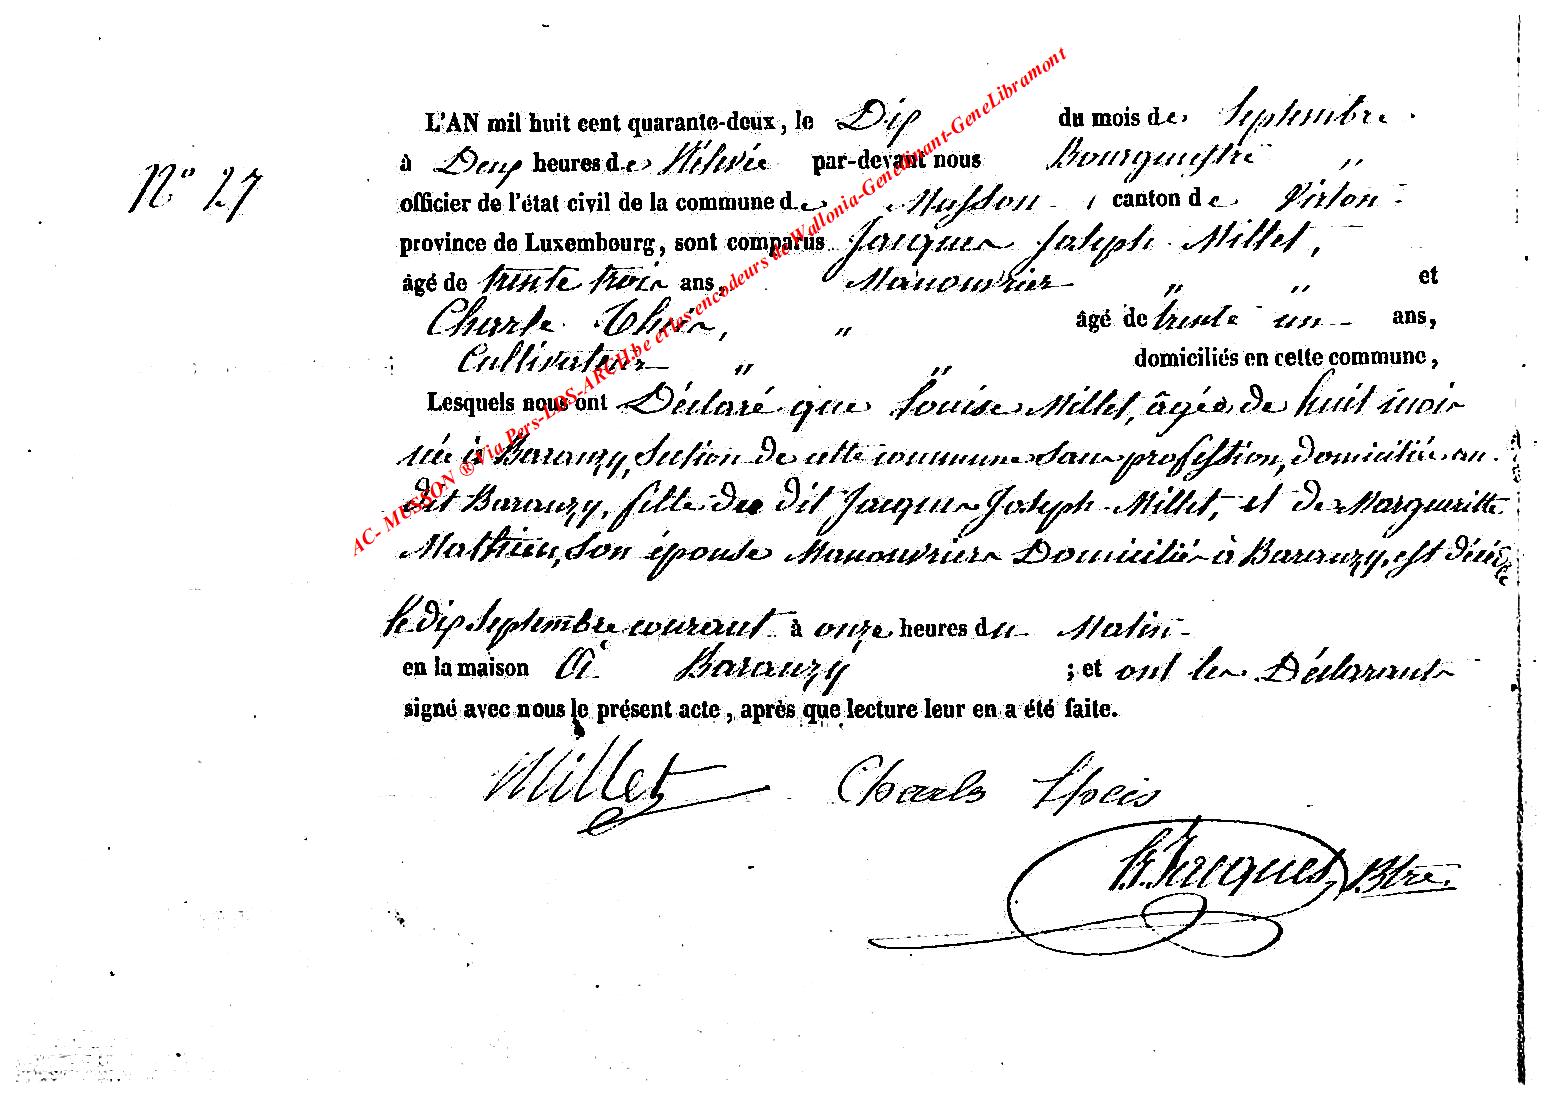 N° 27
L'AN mil huit cent quarante-deux, le Dix du mois de Septembre
à Deux heures de Rélévée par-devant nous Bourguestre "
officier de l'état civil de la commune de Musson, canton de Virton
province de Luxembourg, sont comparus Jacques Joseph Millet,
âgé de trente trois ans, Manouvrier " " et
Charle , " âgé de trente un ans,
Cultivateur " " domiciliés en cette commune,
Lesquels nous ont Déclaré que Louise Millet, âgée de huit mois
née à Baranzy, Section de cette commune sans profession, domiciliée au
dit Baranzy, fille du dit Jacques Joseph Millet, et de Margueritte
Mathieu, son épouse Manouvriers Domiciliés à Baranzy, est décédée
le dix Septembre courant à onze heures du Matin
en la maison à Baranzy ; et ont les Déclarants
signé avec nous le présent acte, après que lecture leur en a été faite.
Millet Charls
Jacques, Btre.
AC- MUSSON ® Via Pers-LDS-ARCH.be et les encodeurs de Wallonia-Genedinant-GeneLibramont